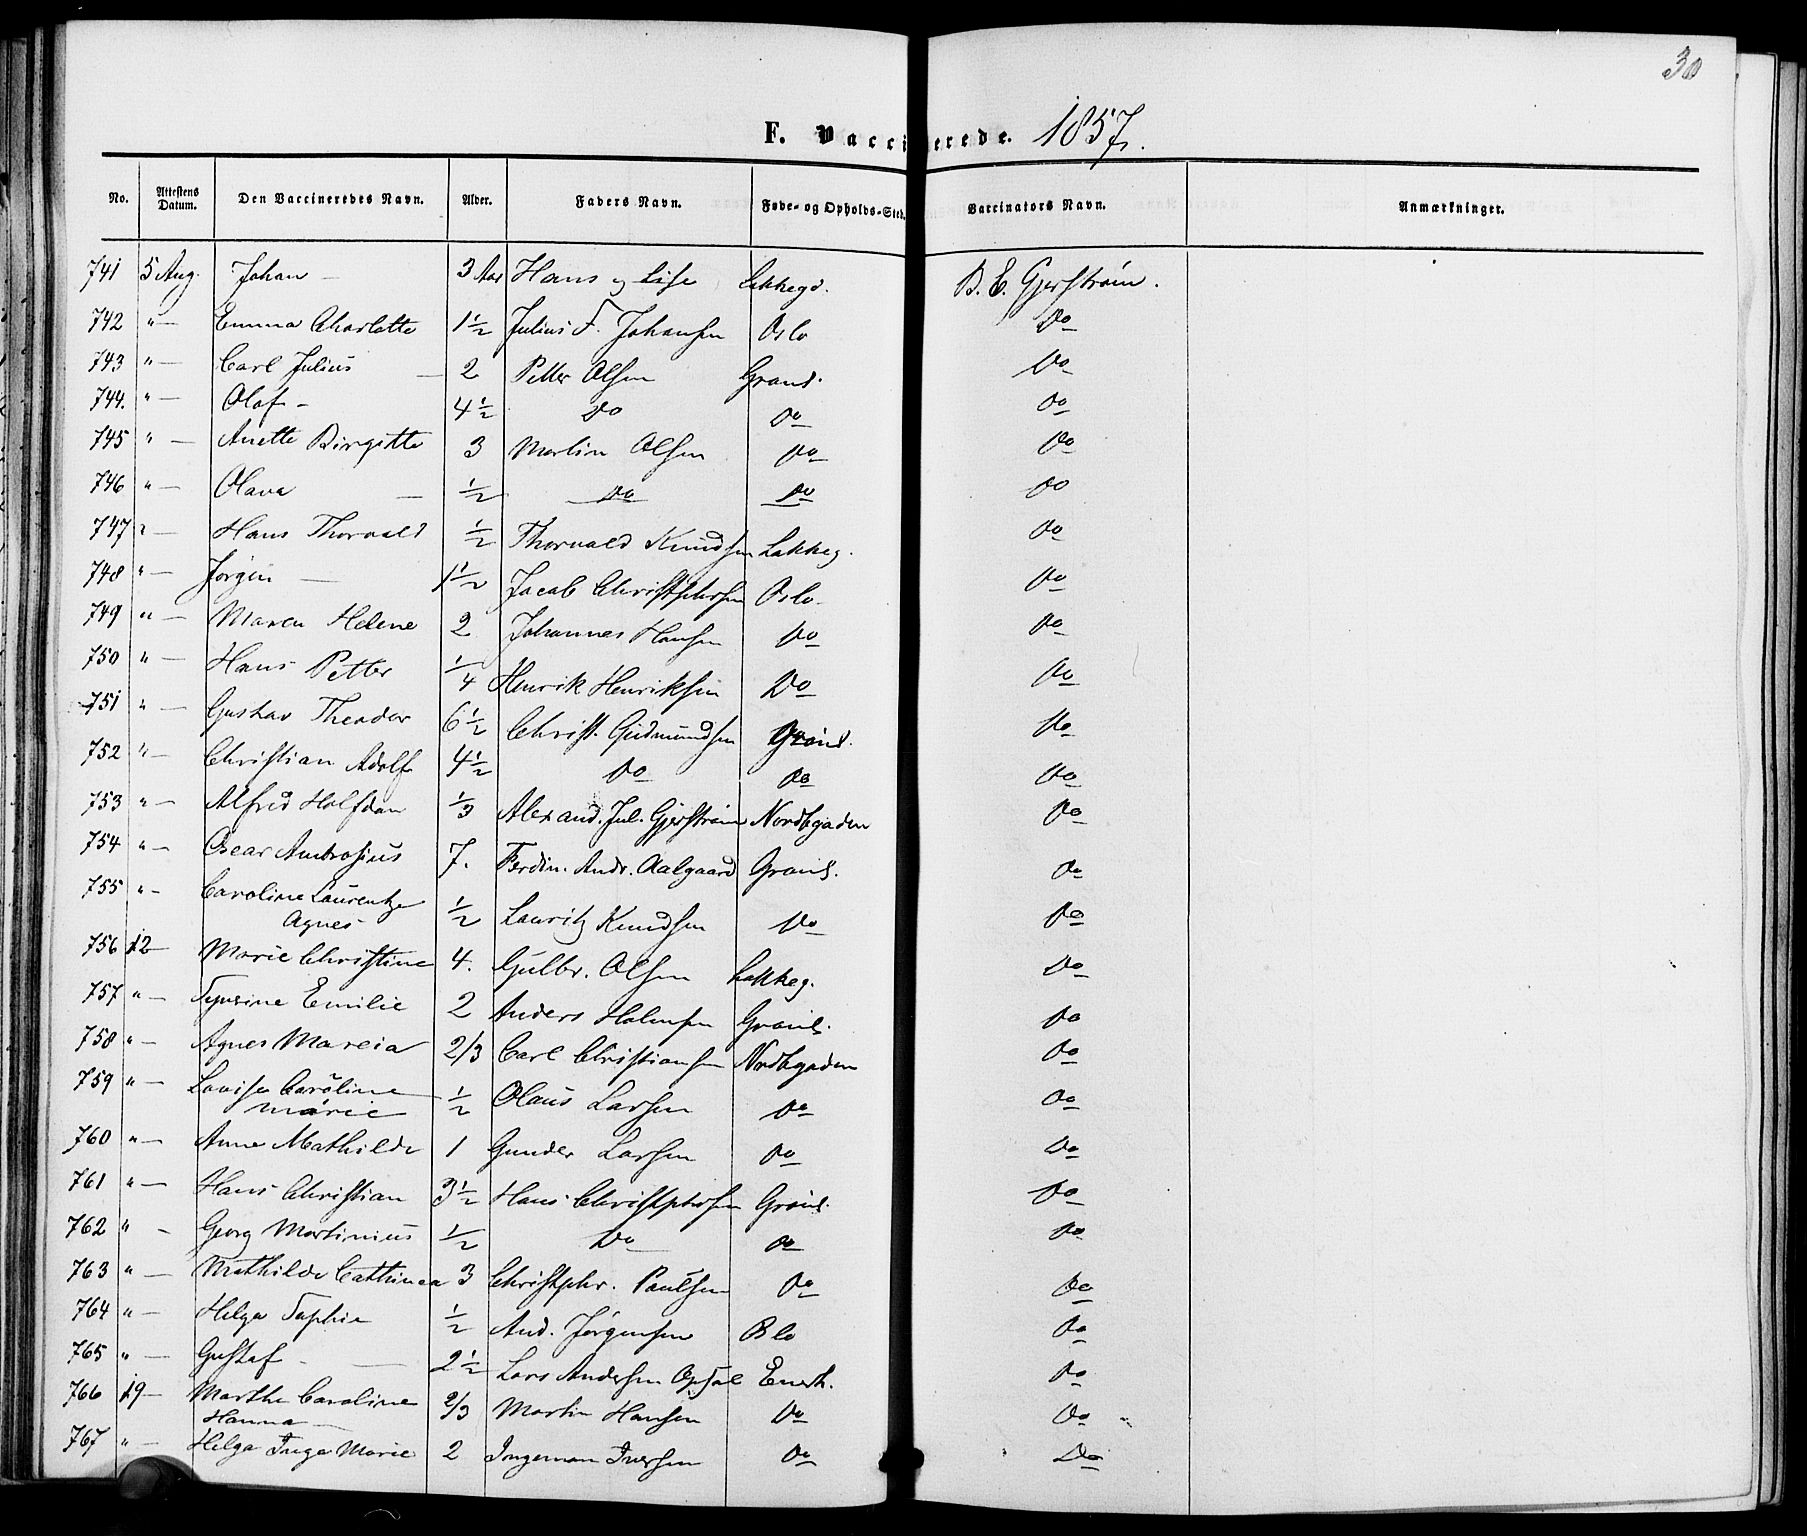 30
F. Vaccinerede. 1857.
No. Attestens Datum. Den Vaccineredes Navn. Alder. Faders Navn. Føde- og Opholds-Sted. Vaccinators Navn. Anmærkninger.
741 5 Aug. Johan — 3 Aar Hans og Lise Lakkegd. B. E. Gjerstrøm.
742 " — Emma Charlotte 1 1/2 Julius F. Johansen Oslo Do
743 " — Carl Julius — 2 Petter Olsen Grønl. Do
744. " — Olaf — 4 1/2 Do Do Do
745 " — Anette Birgitte 3 Martin Olsen Do Do
746 " — Olava — 1/2 Do Do Do
747 " — Hans Thorvald 1/2 Thorvald Knudsen Lakkeg. Do
748 " — Jørgen — 1 1/2 Jacob Christophersen Oslo Do
749 " — Maren Helene 2 Johannes Hansen Do Do
750 " — Hans Petter 1/4 Henrik Henriksen Do Do
751 " — Gustav Theodor 6 1/2 Christ. Gudmundsen Grønl. Do
752 " — Christian Adolf 4 1/2 Do Do Do
753 " — Alfred Halfdan 1/3 Alexand. Jul. Gjerstrøm Nordbygaden Do
754 " — Oscar Ambrosius 7. Ferdin. Andr. Aalgaard Grønl. Do
755 " — Caroline Laurentze
Agnes 1/2 Lauritz Knudsen Do Do
756 12 — Marie Christine 4. Gulbr. Olsen Lakkeg. Do
757 " — Emilie 2 Anders Holmsen Grønl. Do
758 " — Agnes Marcia 2/3 Carl Christiansen Nordbygaden Do
759 " — Lovise Caroline
Marie 1/2 Olaus Larsen Do Do
760 " — Anne Mathilde 1 Gunder Larsen Do Do
761 " — Hans Christian 3 1/2 Hans Christophersen Grønl. Do
762 " — Georg Martinius 1/2 Do Do Do
763 " — Mathilde Cathinca 3 Christopher. Paulsen Do Do
764 " — Helga Sophie 1/2 And. Jørgensen Do
765 " — Gustaf — 2 1/2 Lars Andersen Opsal Enerh. Do
766 19 — Marthe Caroline
Hanna — 2/3 Martin Hansen Do Do
767 " — Helga Inga Marie 2 Ingeman Iversen Do Do